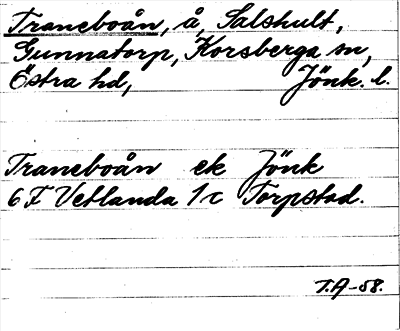 Traneboån, å, Salshult,
Gunnatorp, Korsberga sn,
Östra hd, Jönk. l.
Traneboån ek Jönk
6F Vetlanda 1c Torpstad.
T.A-58.